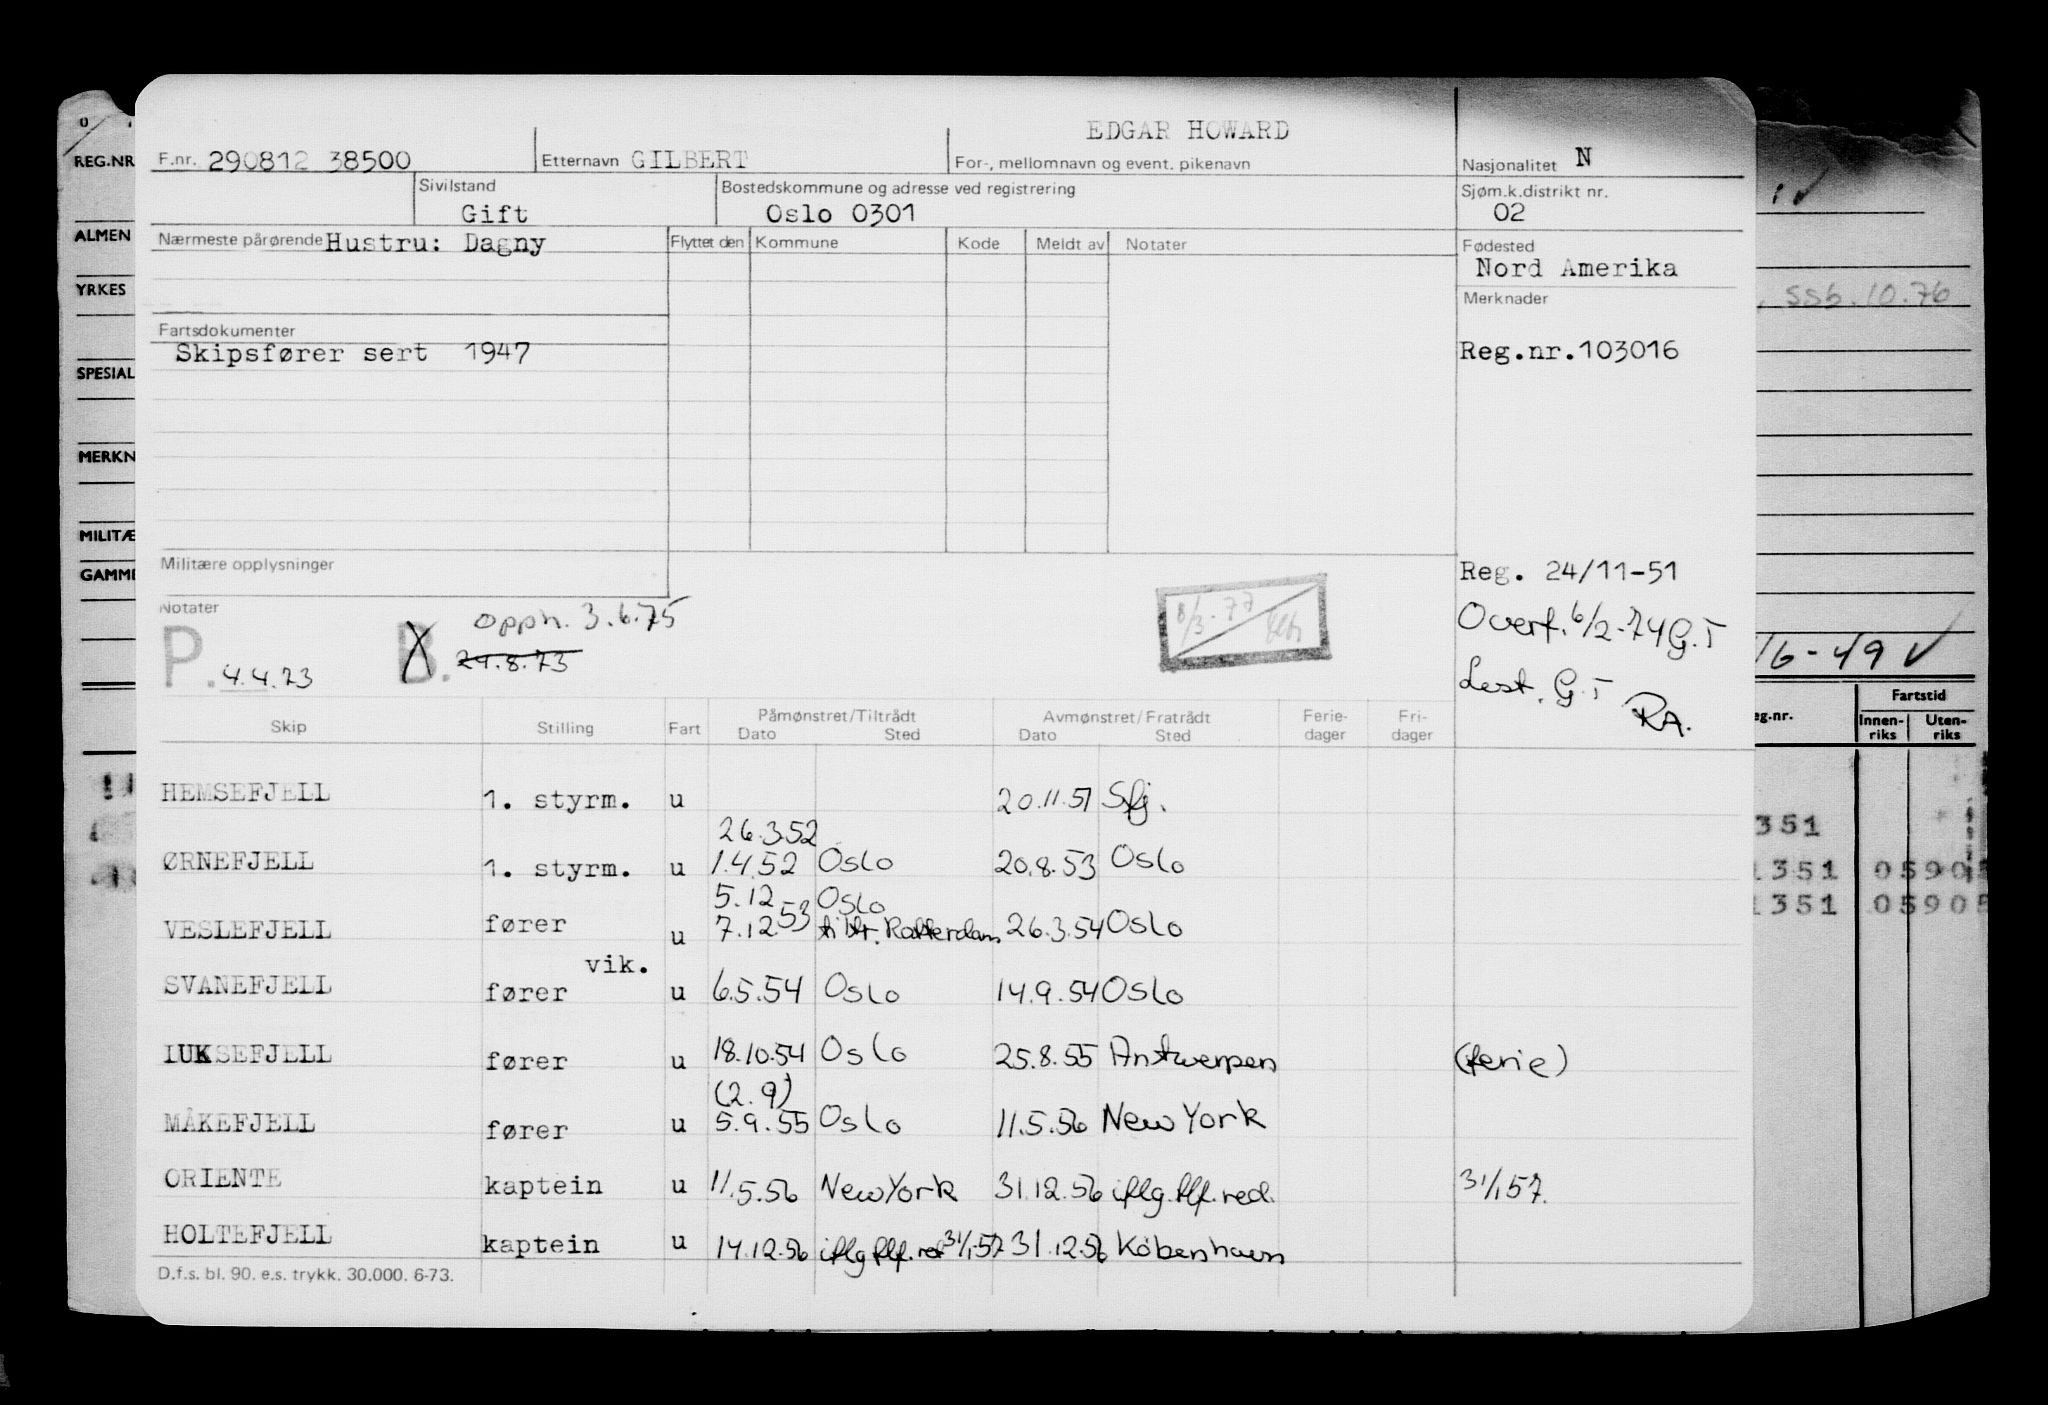 EDGAR HOWARD
F.nr. 290812 38500 Etternavn GILBERT For-, mellomnavn og event. pikenavn Nasjonalitet N
Sivilstand Bostedskommune og adresse ved registrering Sjøm.k.distrikt nr.
Gift Oslo 0301 02
Nærmeste pårørende Hustru: Dagny Flyttet den Kommune Kode Meldt av Notater Fødested
Nord Amerika
Merknader
Fartsdokumenter
Skipsfører sert 1947 Reg.nr.103016
Militære opplysninger Reg. 24/11-51
Notater
P. 4.4.73 B. 29.8.73 opph. 3.6.75 8/3-77 Overf. 6/2-74 G.T
Lest. G.T RA.
Skip Stilling Fart Påmønstret/Tiltrådt Avmønstret/Fratrådt Ferie-dager Fri-dager
Dato Sted Dato Sted
HEMSEFJELL 1. styrm. u 20.11.51 Sfj.
26.3.52
ØRNEFJELL 1. styrm. u 1.4.52 Oslo 20.8.53 Oslo
5.12 Oslo
VESLEFJELL fører u 7.12.53 tiltr. Rotterdam 26.3.54 Oslo
vik.
SVANEFJELL fører u 6.5.54 Oslo 14.9.54 Oslo
LUKSEFJELL fører u 18.10.54 Oslo 25.8.55 Antwerpen (ferie)
(2.9)
MÅKEFJELL fører u 5.9.55 Oslo 11.5.56 New York
ORIENTE kaptein u 11.5.56 New York 31.12.56 iflg. tlf. red. 31/1 57.
HOLTEFJELL kaptein u 14.12.56 iflg tlf. red 31/1-57 31.12.56 København
D.f.s. bl. 90. e.s. trykk. 30.000. 6-73.
REG.NR
ALMEN
YRKES
SPESIAL
MERKN
MILITÆ
GAMME
ssb.10.76
/6-49 ✓
Fartstid
eg.nr. Innen-riks Uten-riks
351
1351 05905
1351 05905